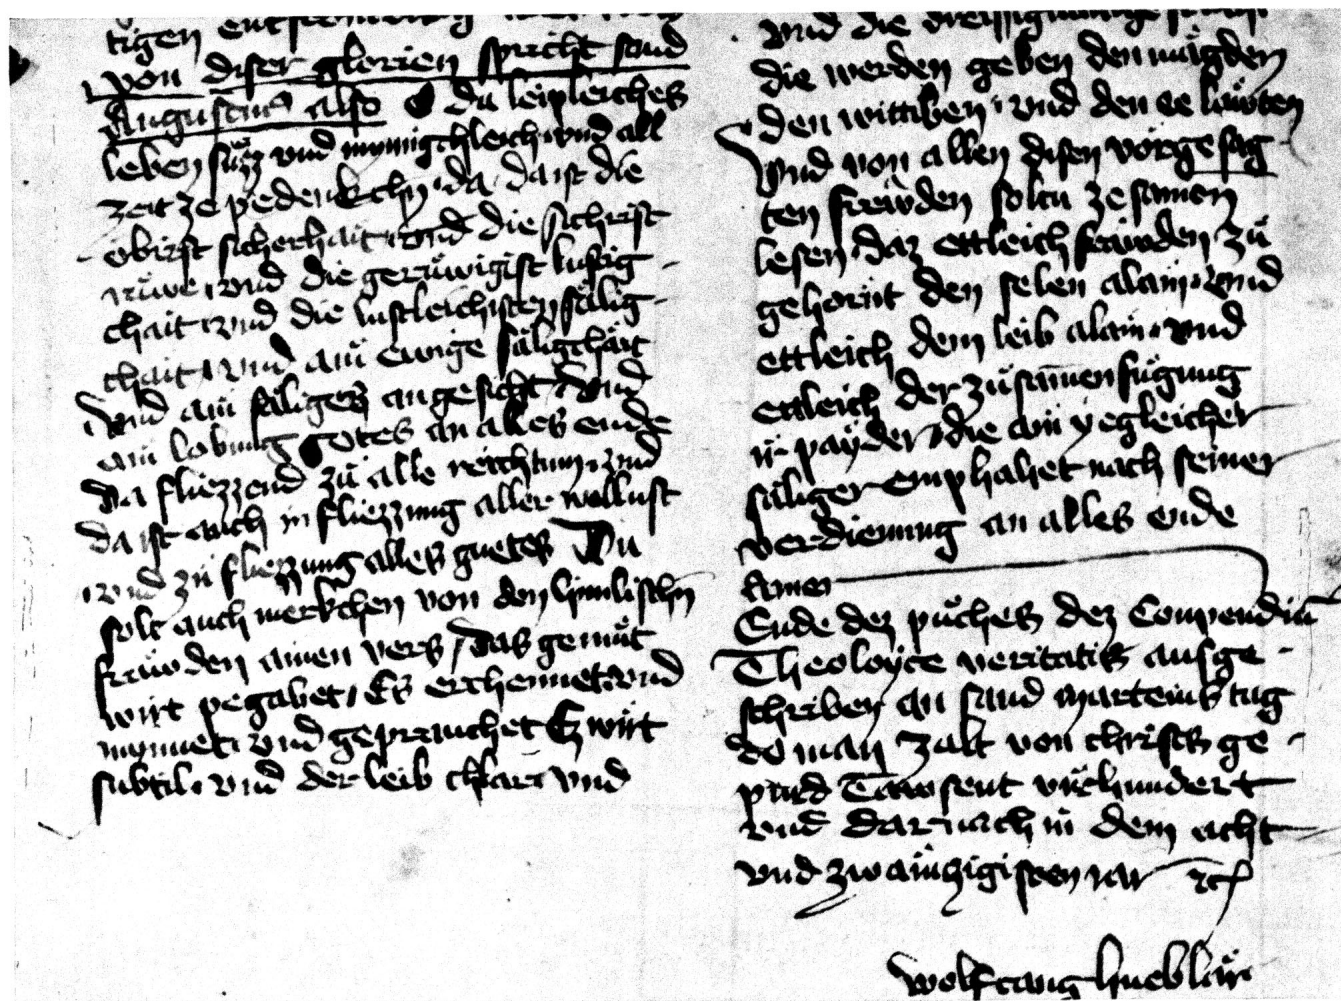 tigen
von diser glorien spricht sand
Augustinus also O du leipleiches
leben süzz vnd mynnigchleich vnd all
zeit ze pedenkchn da da ist die
obirst sicherhait vnd die sichrist
rüwe vnd die gerüwigist lustig
chait vnd die lustleichisten sälig
chait vnd ain ewige säligchait
vnd ain säliges angesicht vnd
ain lobung gotes an alles ende
da fliezzend zü alle reichtum vnd
da ist auch in fliezzung aller wollust
vnd zü fliezzung alles guetes Du
solt auch merkchen von den himlischn
fräwden ainen vers / das gemüt
wirt pegabet / Es erchennet vnd
mynnet vnd geprauchet Es wirt
subtil vnd der leib chlar vnd
vnd die
die werden geben den mägden
den wittiben vnd den ee läwten
Vnd von allen disen vorgesag
ten fräwden soltu ze samen
lesen daz ettleich fräwden zü
gehornt den selen alain vnd
ettleich dem leib alain vnd
ettleich der züsamenfügung
ir payder die ain yegleicher
säliger emphahet nach seiner
verdienung an alles ende
Amen
Ende dez püches dez Compendiu
Theoloyce veritatis ausge
schriben an sand marteins tag
do man zalt von christs ge
purd Tawsent vierhundert
vnd darnach in dem acht
vnd zwainzigisten iar etc
wolfgang hueblär